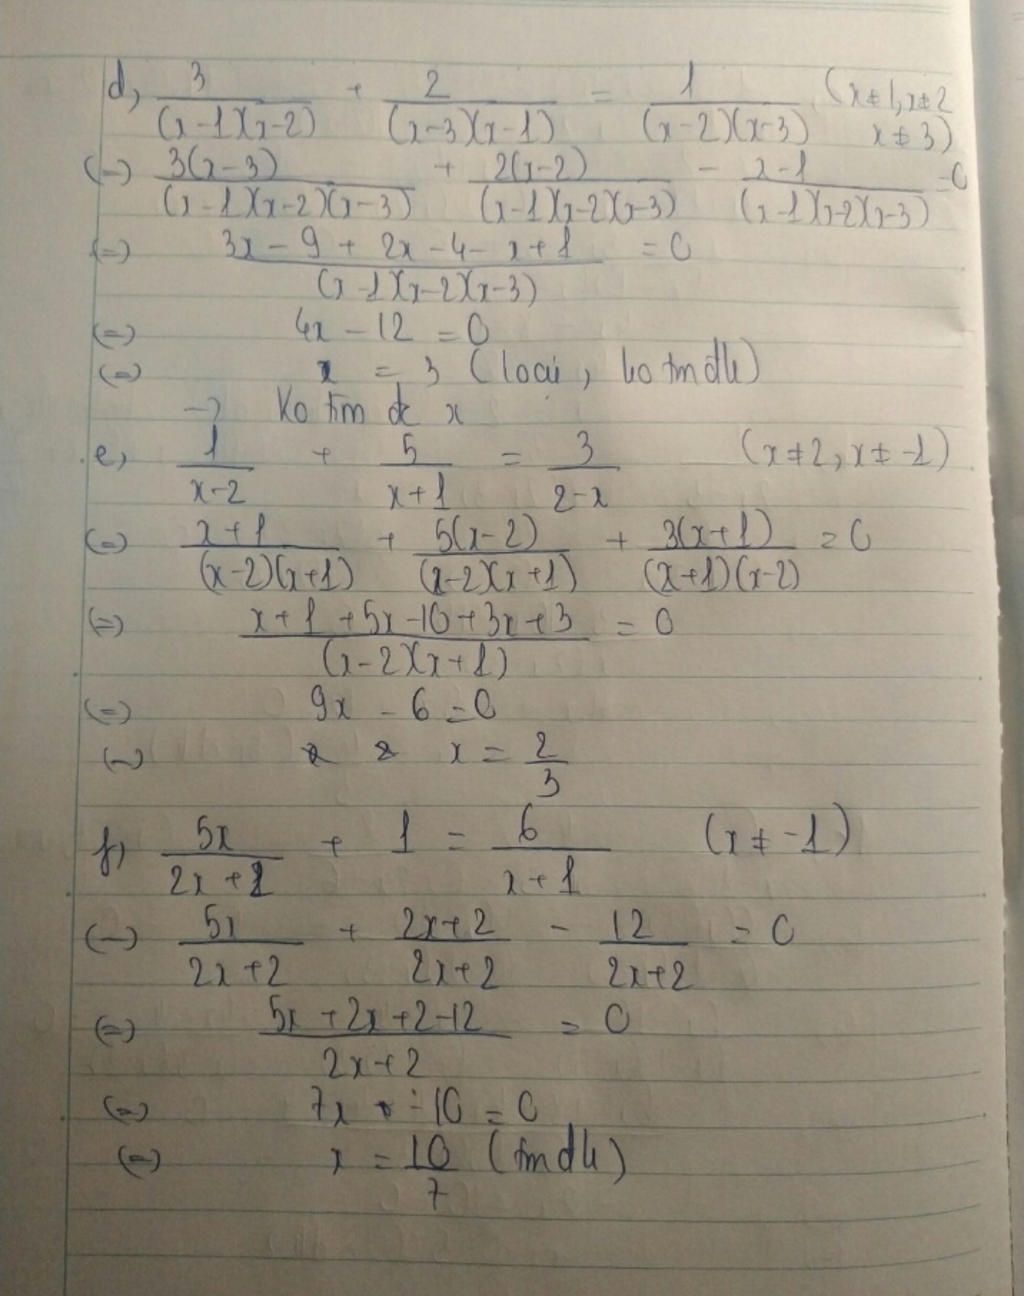 d, 3/((x-1)(x-2)) + 2/((x-3)(x-1)) = 1/((x-2)(x-3)) (x≠1, x≠2 x≠3)
(=) 3(x-3)/((x-1)(x-2)(x-3)) + 2(x-2)/((x-1)(x-2)(x-3)) - x-1/((x-1)(x-2)(x-3)) = 0
(=) 3x - 9 + 2x - 4 - x + 1/((x-1)(x-2)(x-3)) = 0
(=) 4x - 12 = 0
(=) x = 3 (loại, ko tmdk)
→ Ko tìm đc x
e, 1/(x-2) + 5/(x+1) = 3/(2-x) (x≠2, x≠-1)
(=) x+1/((x-2)(x+1)) + 5(x-2)/((x-2)(x+1)) + 3(x+1)/((x+1)(x-2)) = 0
(=) x+1+5x-10+3x+3/((x-2)(x+1)) = 0
(=) 9x - 6 = 0
(=) x = 2/3
f, 5x/(2x+2) + 1 = 6/(x+1) (x≠-1)
(=) 5x/(2x+2) + 2x+2/(2x+2) - 12/(2x+2) = 0
(=) 5x+2x+2-12/(2x+2) = 0
(=) 7x - 10 = 0
(=) x = 10/7 (tmdk)